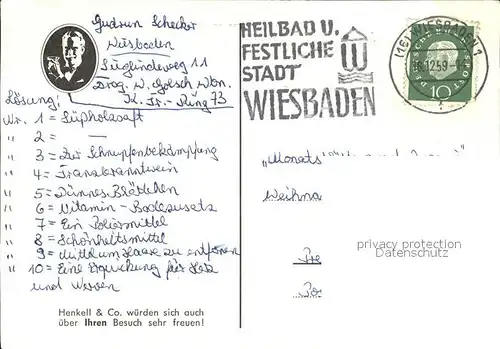 Gudrun Schecker
Wiesbaden
Siglindenweg 11
Drog. W. Golsch Wbn.
K. Fr.-Ring 73
Lösung:
Nr. 1 = Süßholzsaft
" 2 = —
" 3 = Zur Schnupfenbekämpfung
" 4 = Franzbranntwein
" 5 = Dünnes Blättchen
" 6 = Vitamin-Badezusatz
" 7 = Ein Poliermittel
" 8 = Schönheitsmittel
" 9 = Mittel um Haare zu entfernen
" 10 = Eine Erquickung für Herz
und Nerven
Henkell & Co. würden sich auch
über Ihren Besuch sehr freuen!
HEILBAD U.
FESTLICHE
STADT
WIESBADEN
(16) WIESBADEN 1
12.59
DEUTSCHE BUNDESPOST
10
"Monats
Weihna
privacy protection
Datenschutz